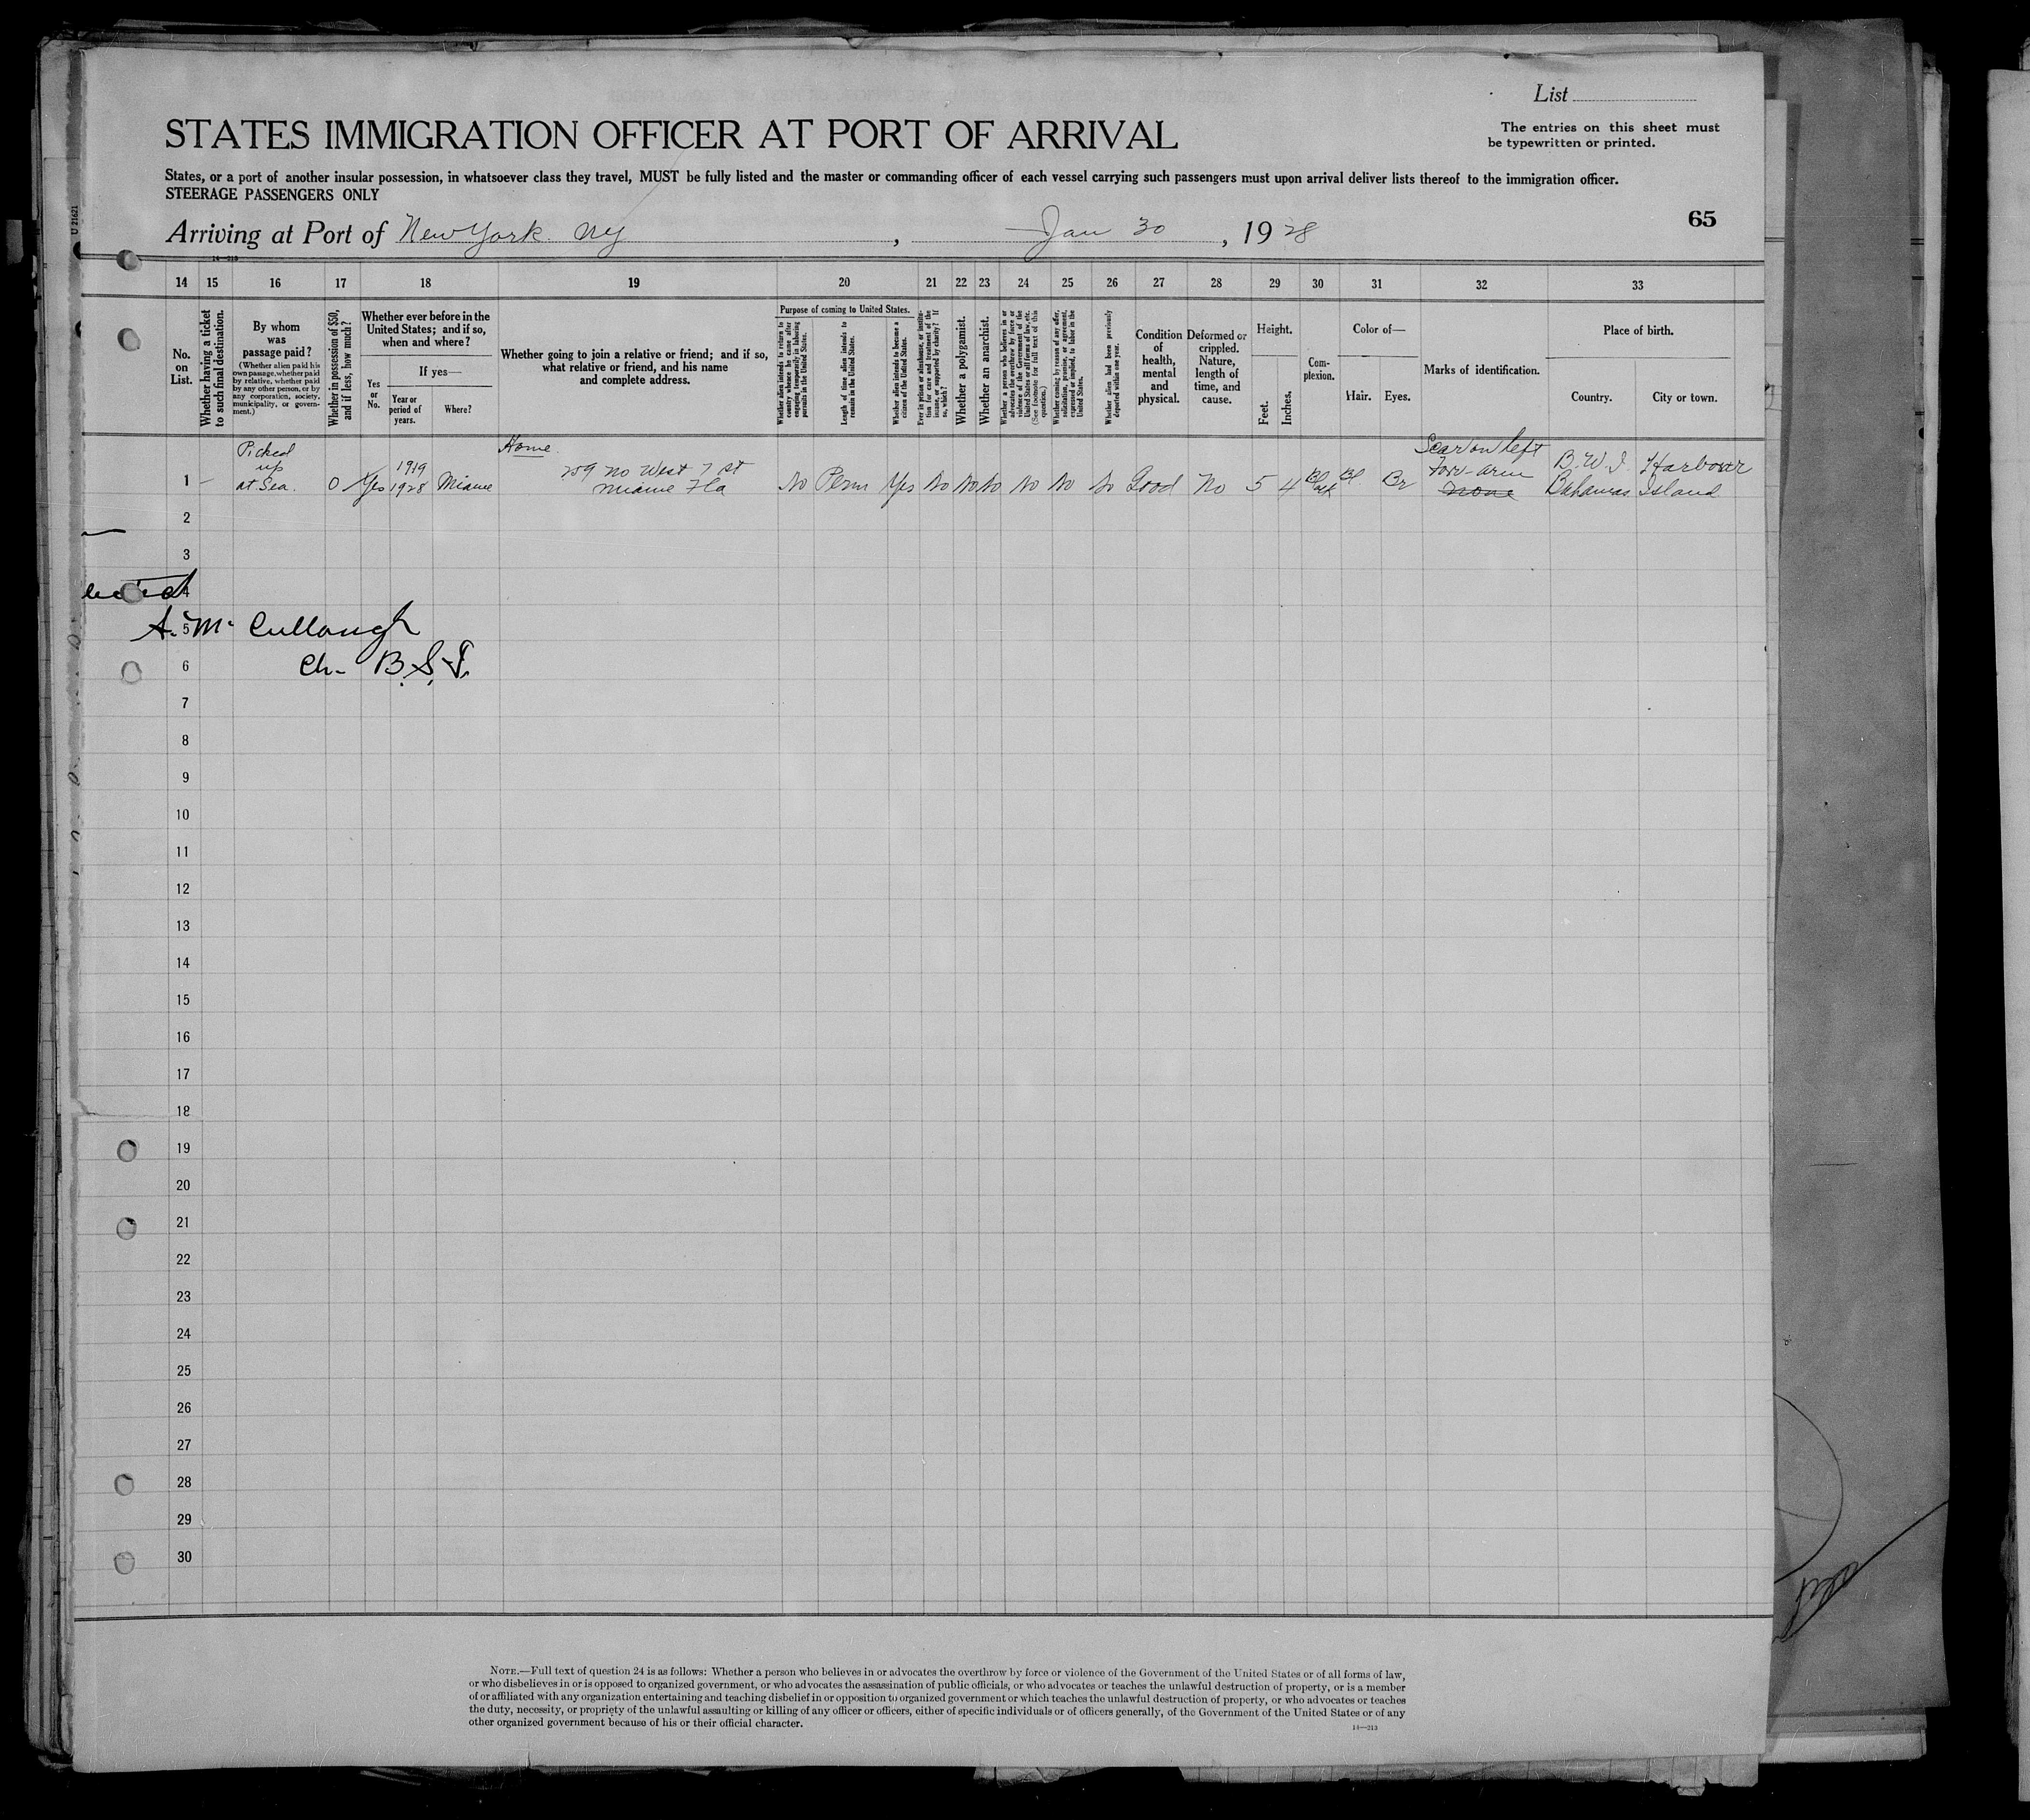 List
The entries on this sheet must
be typewritten or printed.
STATES IMMIGRATION OFFICER AT PORT OF ARRIVAL
States, or a port of another insular possession, in whatsoever class they travel, MUST be fully listed and the master or commanding officer of each vessel carrying such passengers must upon arrival deliver lists thereof to the immigration officer.
STEERAGE PASSENGERS ONLY
65
U 21621
Arriving at Port of New York. NY , Jan 30 , 19 28
14—213
14 15 16 17 18 19 20 21 22 23 24 25 26 27 28 29 30 31 32 33
No.
on
List.
Whether having a ticket
to such final destination.
By whom
was
passage paid?
(Whether alien paid his
own passage, whether paid
by relative, whether paid
by any other person, or by
any corporation, society,
municipality, or govern-
ment.)
Whether in possession of $50,
and if less, how much?
Whether ever before in the
United States; and if so,
when and where?
Yes
or
No.
If yes—
Year or
period of
years.
Where?
Whether going to join a relative or friend; and if so,
what relative or friend, and his name
and complete address.
Purpose of coming to United States.
Whether alien intends to return to
country whence he came after
engaging temporarily in laboring
pursuits in the United States.
Length of time alien intends to
remain in the United States.
Whether alien intends to become a
citizen of the United States.
Ever in prison or almshouse, or institu-
tion for care and treatment of the
insane, or supported by charity? If
so, which?
Whether a polygamist.
Whether an anarchist.
Whether a person who believes in or
advocates the overthrow by force or
violence of the Government of the
United States or all forms of law, etc.
(See footnote for full text of this
question.)
Whether coming by reason of any offer,
solicitation, promise, or agreement,
expressed or implied, to labor in the
United States.
Whether alien had been previously
deported within one year.
Condition
of
health,
mental
and
physical.
Deformed or
crippled.
Nature,
length of
time, and
cause.
Height.
Feet.
Inches.
Com-
plexion.
Color of—
Hair. Eyes.
Marks of identification.
Place of birth.
Country. City or town.
Picked
up
at Sea.
Home.
1919
259 No West 7 St
Scar on left
B.W.I. Harbour
fore-arm
1 – 0 Yes 1928 Miami Miami Fla No Perm Yes No No No No No No Good No 5 4 Black Bl Br none Bahamas Island
2
3
4
5 A. Mc Cullough
6 Ch. B.S.I.
7
8
9
10
11
12
13
14
15
16
17
18
19
20
21
22
23
24
25
26
27
28
29
30
NOTE.—Full text of question 24 is as follows: Whether a person who believes in or advocates the overthrow by force or violence of the Government of the United States or of all forms of law,
or who disbelieves in or is opposed to organized government, or who advocates the assassination of public officials, or who advocates or teaches the unlawful destruction of property, or is a member
of or affiliated with any organization entertaining and teaching disbelief in or opposition to organized government or which teaches the unlawful destruction of property, or who advocates or teaches
the duty, necessity, or propriety of the unlawful assaulting or killing of any officer or officers, either of specific individuals or of officers generally, of the Government of the United States or of any
other organized government because of his or their official character.
14—213